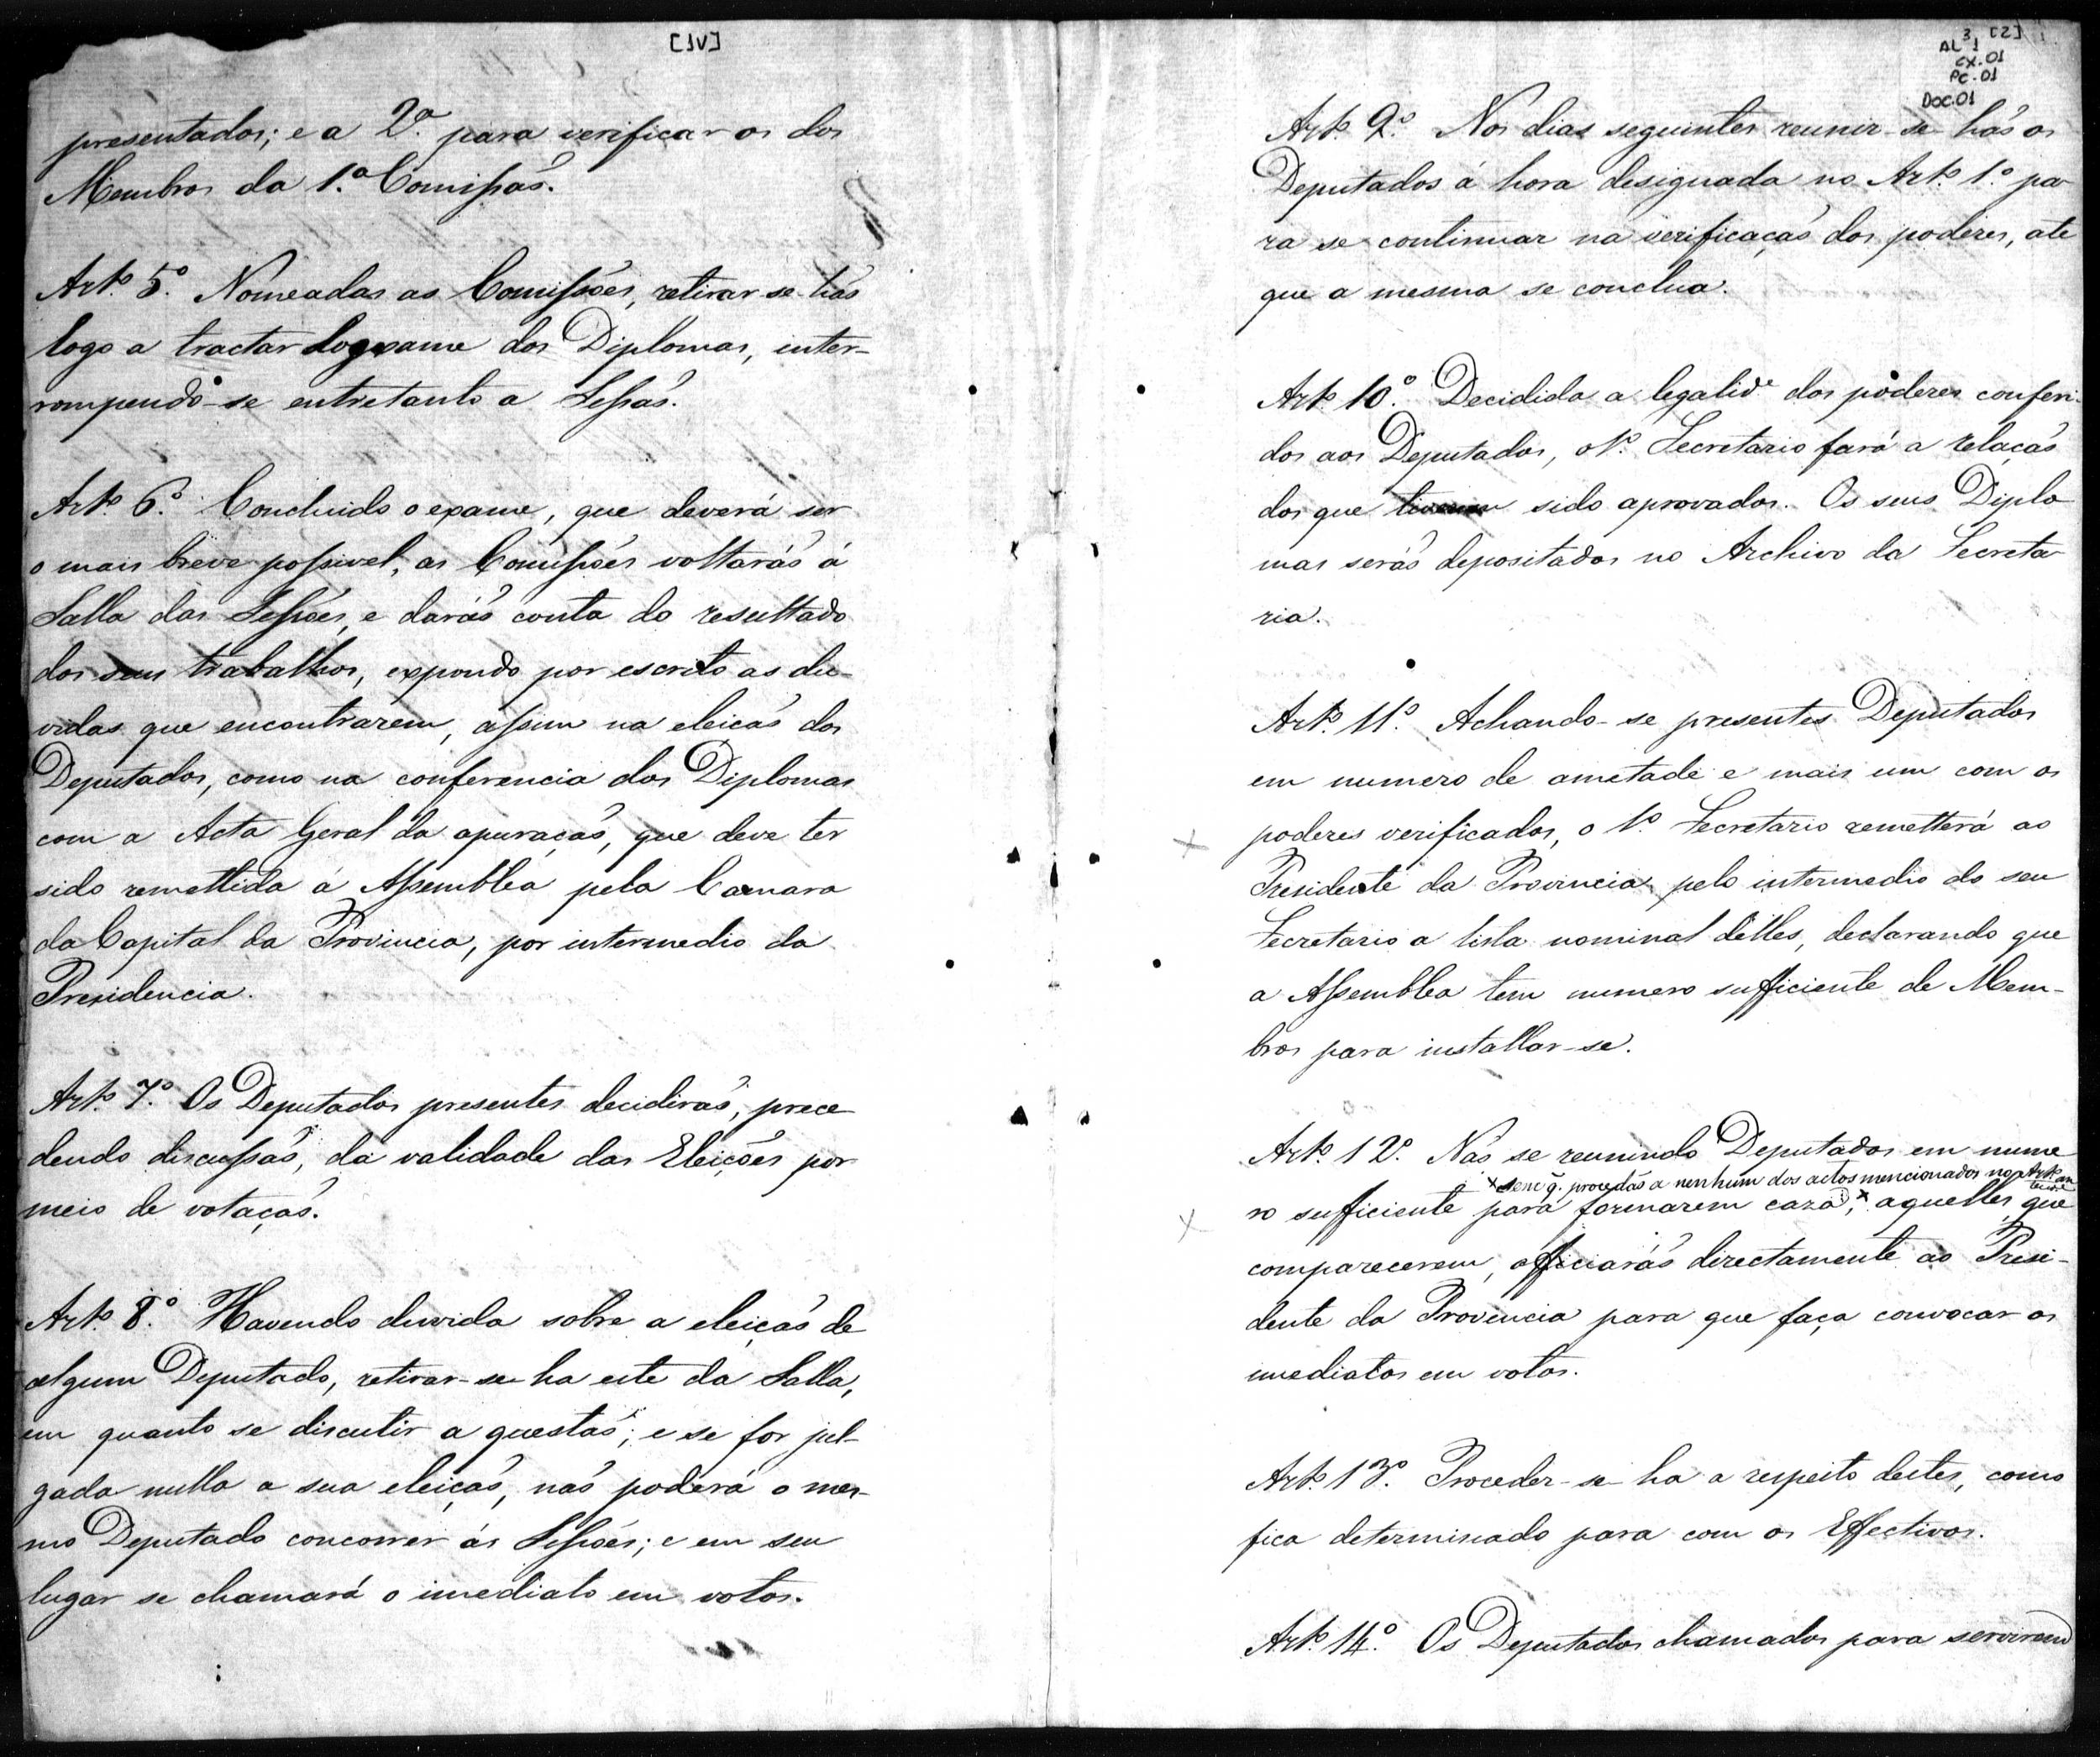 [1V]
presentados; e a 2ª para verificar os dos
Membros da 1ª Comissaõ.
Artº 5º. Nomeadas as Comissões, retirar-se-haõ
logo a tractar do exame dos Diplomas, inter-
rompendo-se entretanto a Sessaõ.
Artº 6º. Concluido o exame, que deverá ser
o mais breve possivel, as Comissões voltaráõ á
Salla das Sessões, e daráõ conta do resultado
dos seus trabalhos, expondo por escrito as du-
vidas que encontrarem, assim na eleiçaõ dos
Deputados, como na conferencia dos Diplomas
com a Acta Geral da apuraçaõ, que deve ter
sido remettida á Assembléa pela Camara
da Capital da Provincia, por intermedio da
Presidencia.
Artº 7º. Os Deputados presentes decidiráõ, prece
dendo discussaõ, da validade das Eleições por
meio de votaçaõ.
Artº 8º. Havendo duvida sobre a eleiçaõ de
algum Deputado, retirar-se-ha este da Salla,
em quanto se discutir a questaõ; e se for jul-
gada nulla a sua eleiçaõ, naõ poderá o mes-
mo Deputado concorrer ás Sessões; e em seu
lugar se chamará o imediato em votos.
3 [2]
AL 1
CX.01
PC.01
DOC.01
Artº 9º. Nos dias seguintes reunir-se-haõ os
Deputados á hora designada no Artº 1º pa
ra se continuar na verificaçaõ dos poderes, ate
que a mesma se conclua.
Artº 10º. Decidida a legalidᵉ dos poderes conferi-
dos aos Deputados, o 1º Secretario fará a relaçaõ
dos que tiverem sido aprovados. Os seus Diplo
mas seráõ depositados no Archivo da Secreta
ria.
Artº 11º. Achando-se presentes Deputados
em numero de ametade e mais um com os
poderes verificados, o 1º Secretario remetterá ao
Presidente da Provincia pelo intermedio do seu
Secretario a lista nominal délles, declarando que
a Assemblea tem numero sufficiente de Mem-
bros para installar-se.
Artº 12º. Naõ se reunindo Deputados em nume
x sem q̃. procedaõ a nenhum dos actos mencionados no Artº an
tecede
ro sufficiente para formarem caza, x aquelles que
comparecerem, officiaráõ directamente ao Presi-
dente da Provincia para que faça convocar os
imediatos em votos.
Artº 13º. Proceder-se-ha a respeito destes, como
fica determinado para com os Effectivos.
Artº 14º. Os Deputados chamados para servirem